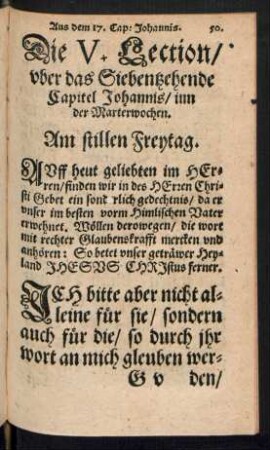 Aus dem 17. Cap: Johannis. 50.
Die V. Lection/
vber das Siebentzehende
Capitel Johannis/ inn
der Marterwochen.
Am stillen Freytag.
AVff heut geliebten im HEr-
ren/ finden wir in des HErren Chri-
sti Gebet ein sond rlich gedechtnis/ da er
vnser im besten vorm Himlischen Vater
erwehnet. Wöllen derowegen/ die wort
mit rechter Glaubenskrafft mercken vnd
anhören: So betet vnser geträwer Hey-
land JHESVS CHRJstus ferner.
JCH bitte aber nicht al-
leine für sie/ sondern
auch für die/ so durch jhr
wort an mich gleuben wer-
G v den/